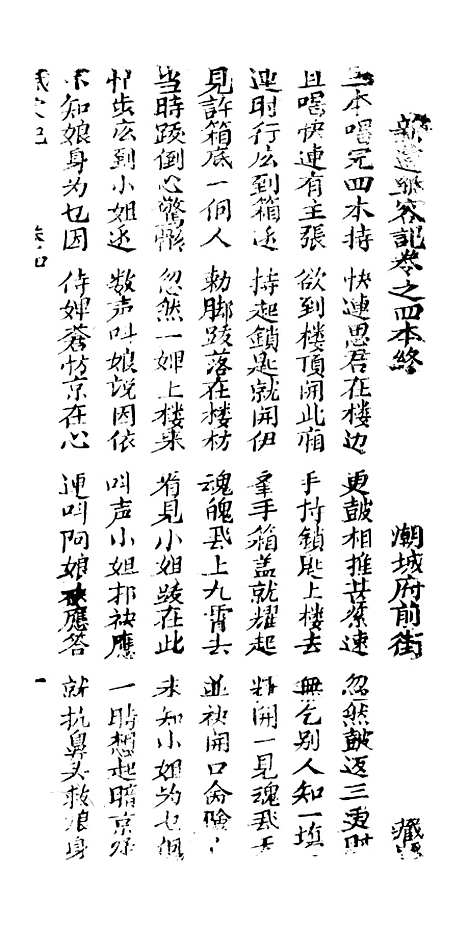 新造容記卷之四本終 潮城府前街 藏
三本唱完四本持 快連思君在楼边 更鼓相推甚緊速 忽然鼓返三更时
且唱快連有主張 欲到楼頂開此廂 手持鎖匙上楼去 無乞别人知一
連时行広到箱边 持起鎖匙就開伊 牽手箱盖就耀起 開一見魂飛天
見許箱底一個人 勅脚跋落在楼枋 魂魄飛上九霄去 並袂開口侖險
当時跋倒心驚骸 忽然一婢上楼来 看見小姐跋在此 未知小姐为乜個
忙步広到小姐边 数声叫娘説因依 叫声小姐都袂應 一時想起暗京疑
不知娘身为乜因 侍婢蒼忙京在心 連叫阿娘袂應答 就抗鼻头救娘身